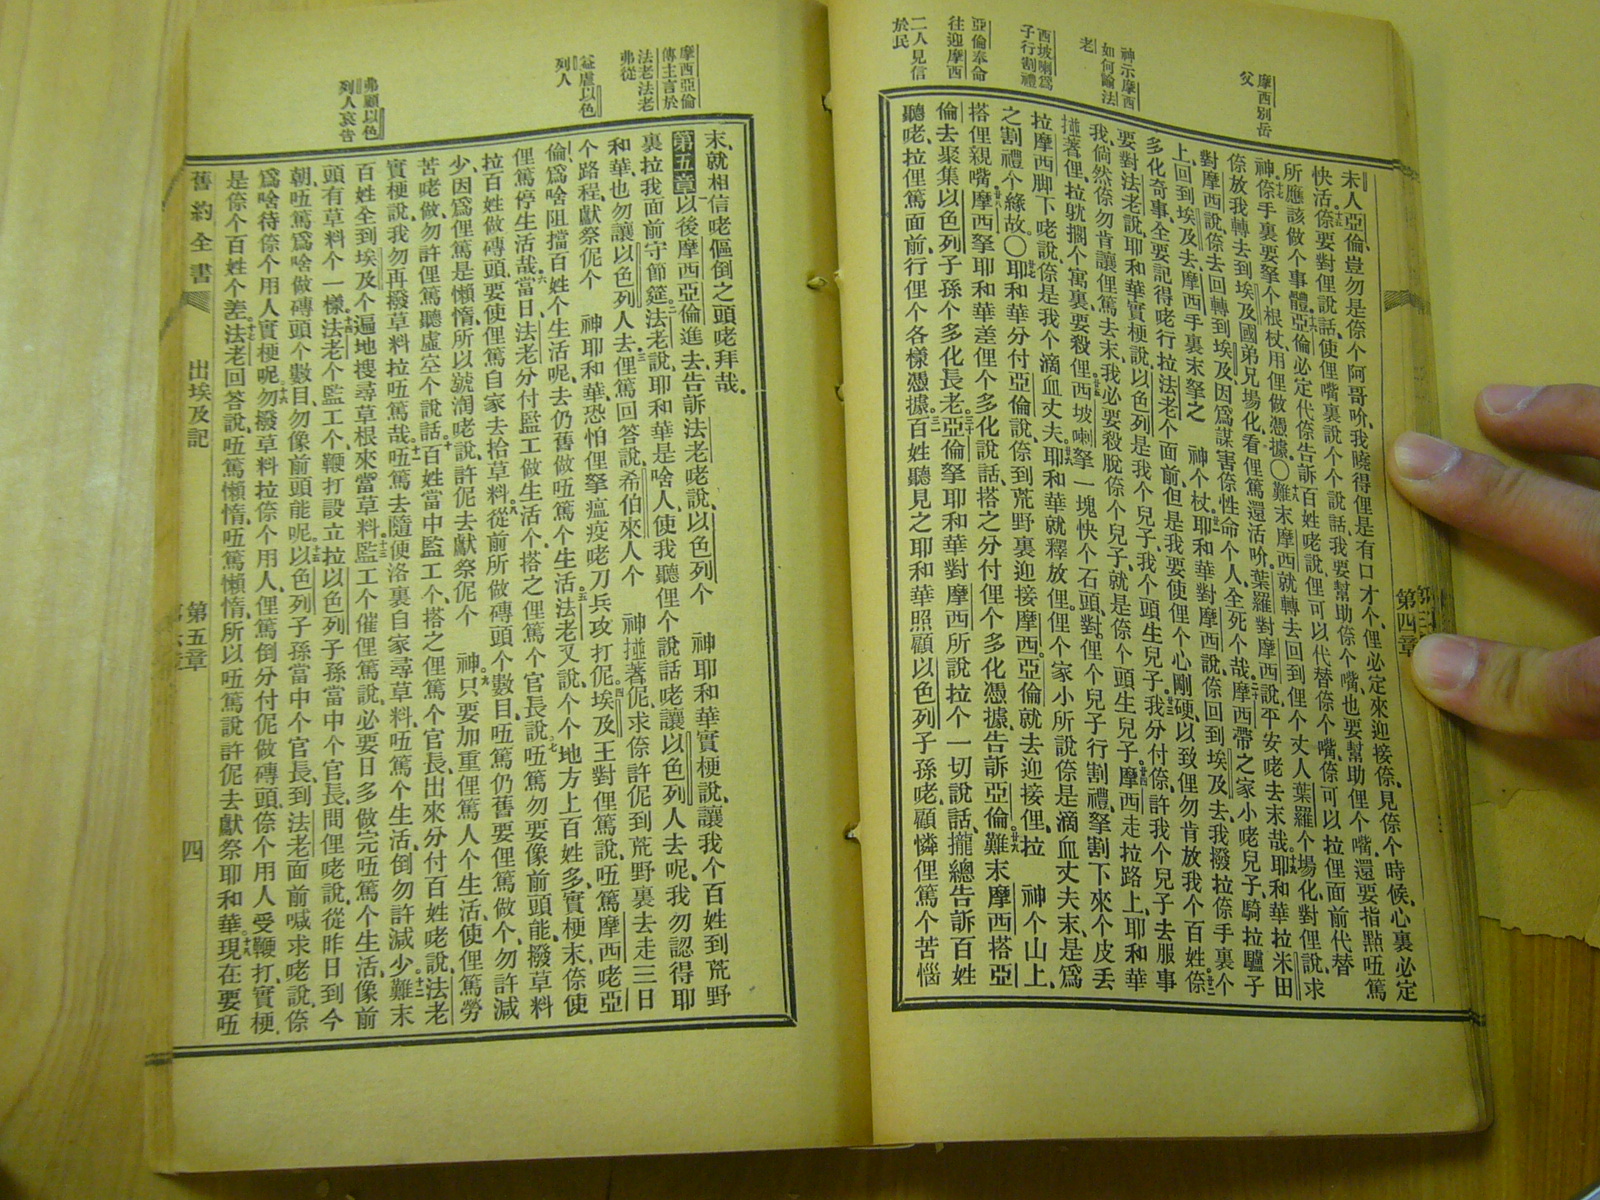 摩西別岳
父
神示摩西
如何諭法
老
西坡喇爲
子行割禮
亞倫奉命
往迎摩西
二人見信
於民
第四章
未人亞倫、豈勿是㑚个阿哥吤、我曉得俚是有口才个、俚必定來迎接㑚、見㑚个時候、心裏必定
快活、㑚要對俚說話、使俚嘴裏說个个說話、我要幫助㑚个嘴、也要幫助俚个嘴、還要指點㕶篤
所應該做个事體、亞倫必定代㑚告訴百姓咾說、俚可以代替㑚个嘴、㑚可以拉俚面前代替
神、㑚手裏要拏个根杖、用俚做憑據、〇難末摩西就轉去、回到俚个丈人葉羅个場化、對俚說、求
㑚放我轉去、到埃及國弟兄場化、看俚篤還活吤、葉羅對摩西說、平安咾去末哉、耶和華拉米田
對摩西說、㑚去回轉到埃及、因爲謀害㑚性命个人、全死个哉、摩西帶之家小咾兒子、騎拉驢子
上、回到埃及去、摩西手裏末拏之 神个杖、耶和華對摩西說、㑚回到埃及去、我撥拉㑚手裏个
多化奇事、全要記得咾行拉法老个面前、但是我要使俚个心剛硬、以致俚勿肯放我个百姓、㑚
要對法老說、耶和華實梗說、以色列是我个兒子、我个頭生兒子、我分付㑚、許我个兒子去服事
我、倘然㑚勿肯讓俚篤去末、我必要殺脫㑚个兒子、就是㑚个頭生兒子、摩西走拉路上、耶和華
搕著俚、拉躭擱个寓裏、要殺俚、西坡喇拏一塊快个石頭、對俚个兒子行割禮、拏割下來个皮丟
拉摩西脚下咾說、㑚是我个滴血丈夫、耶和華就釋放俚、俚个家小所說㑚是滴血丈夫末、是爲
之割禮个緣故、〇耶和華分付亞倫說、㑚到荒野裏迎接摩西、亞倫就去迎接俚、拉 神个山上、
搭俚親嘴、摩西拏耶和華差俚个多化說話、搭之分付俚个多化憑據、告訴亞倫、難末摩西搭亞
倫去聚集以色列子孫个多化長老、亞倫拏耶和華對摩西所說拉个一切說話、攏總告訴百姓
聽咾、拉俚篤面前、行俚个各樣憑據、百姓聽見之耶和華照顧以色列子孫咾、顧憐俚篤个苦惱
摩西亞倫
傳主言於
法老法老
弗從
益虐以色
列人
弗顧以色
列人哀告
末、就相信咾傴倒之頭咾拜哉、
第五章以後摩西亞倫進去、告訴法老咾說、以色列个 神耶和華實梗說、讓我个百姓到荒野
裏、拉我面前守節筵、法老說、耶和華是啥人、使我聽俚个說話咾讓以色列人去呢、我勿認得耶
和華、也勿讓以色列人去、俚篤回答說、希伯來人个 神搕著伲、求㑚許伲到荒野裏去走三日
个路程、獻祭伲个 神耶和華、恐怕俚拏瘟疫咾刀兵攻打伲、埃及王對俚篤說、㕶篤摩西咾亞
倫、爲啥阻擋百姓个生活呢、去仍舊做㕶篤个生活、法老叉說、个个地方上百姓多、實梗末、㑚使
俚篤停生活哉、當日法老分付監工做生活个、搭之俚篤个官長說、㕶篤勿要像前頭能、撥草料
拉百姓做磚頭、要使俚篤自家去拾草料、從前所做磚頭个數目、㕶篤仍舊要俚篤做个、勿許減
少、因爲俚篤是懶惰、所以號㴻咾說、許伲去獻祭伲个 神、只要加重俚篤人个生活、使俚篤勞
苦咾做、勿許俚篤聽虛空个說話、百姓當中監工个、搭之俚篤个官長、出來分付百姓咾說、法老
實梗說、我勿再撥草料拉㕶篤哉、㕶篤去隨便洛裏自家尋草料、㕶篤个生活、倒勿許減少、難末
百姓全到埃及个遍地、搜尋草根、來當草料、監工个催俚篤說、必要日多做完㕶篤个生活、像前
頭有草料个一樣、法老个監工个、鞭打設立拉以色列子孫當中个官長、問俚咾說、從昨日到今
朝、㕶篤爲啥做磚頭个數目、勿像前頭能呢、以色列子孫當中个官長、到法老面前喊求咾說、㑚
爲啥待㑚个用人實梗呢、勿撥草料拉㑚个用人、俚篤倒分付伲做磚頭、㑚个用人受鞭打、實梗、
是㑚个百姓个差、法老回答說、㕶篤懶惰、㕶篤懶惰、所以㕶篤說、許伲去獻祭耶和華、現在要㕶
舊約全書 出埃及記 第五章 四